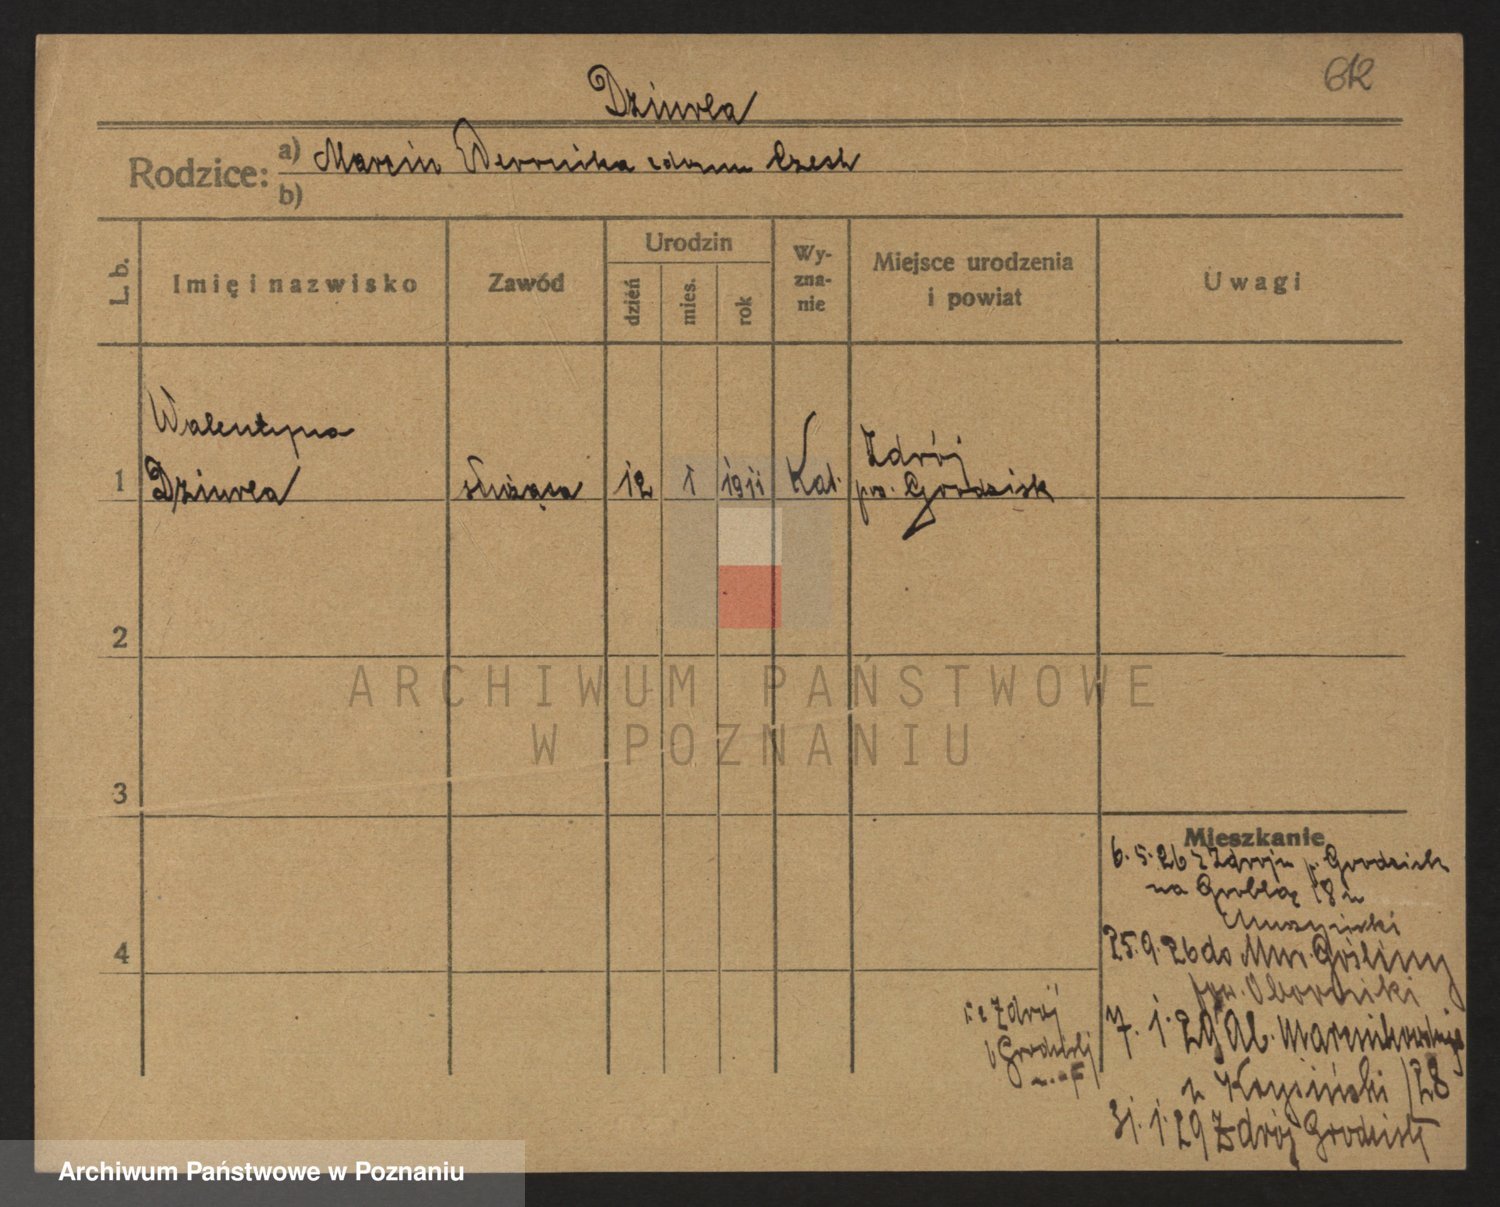 612
Dziurla
Rodzice:
a) Marcin Weronika z domu Czesh
b)
L. b.
Imię i nazwisko
Zawód
Urodzin
dzień
mies.
rok
Wy-
zna-
nie
Miejsce urodzenia
i powiat
Uwagi
Walentyna
1 Dziurla służąca 12 1 1911 Kat. Zdrój
pow. Grodzisk
2
3
4
ARCHIWUM PAŃSTWOWE
W POZNANIU
Mieszkanie
6.5.26 z Zdroju p. Grodzisk
na Groblą 18 u
25.9.26 do Mur. Gośliny
pow. Oborniki
7.1.29 Al. Marcinkowskiego
u /28
31.1.29 Zdrój Grodzisk
Zdrój
Archiwum Państwowe w Poznaniu